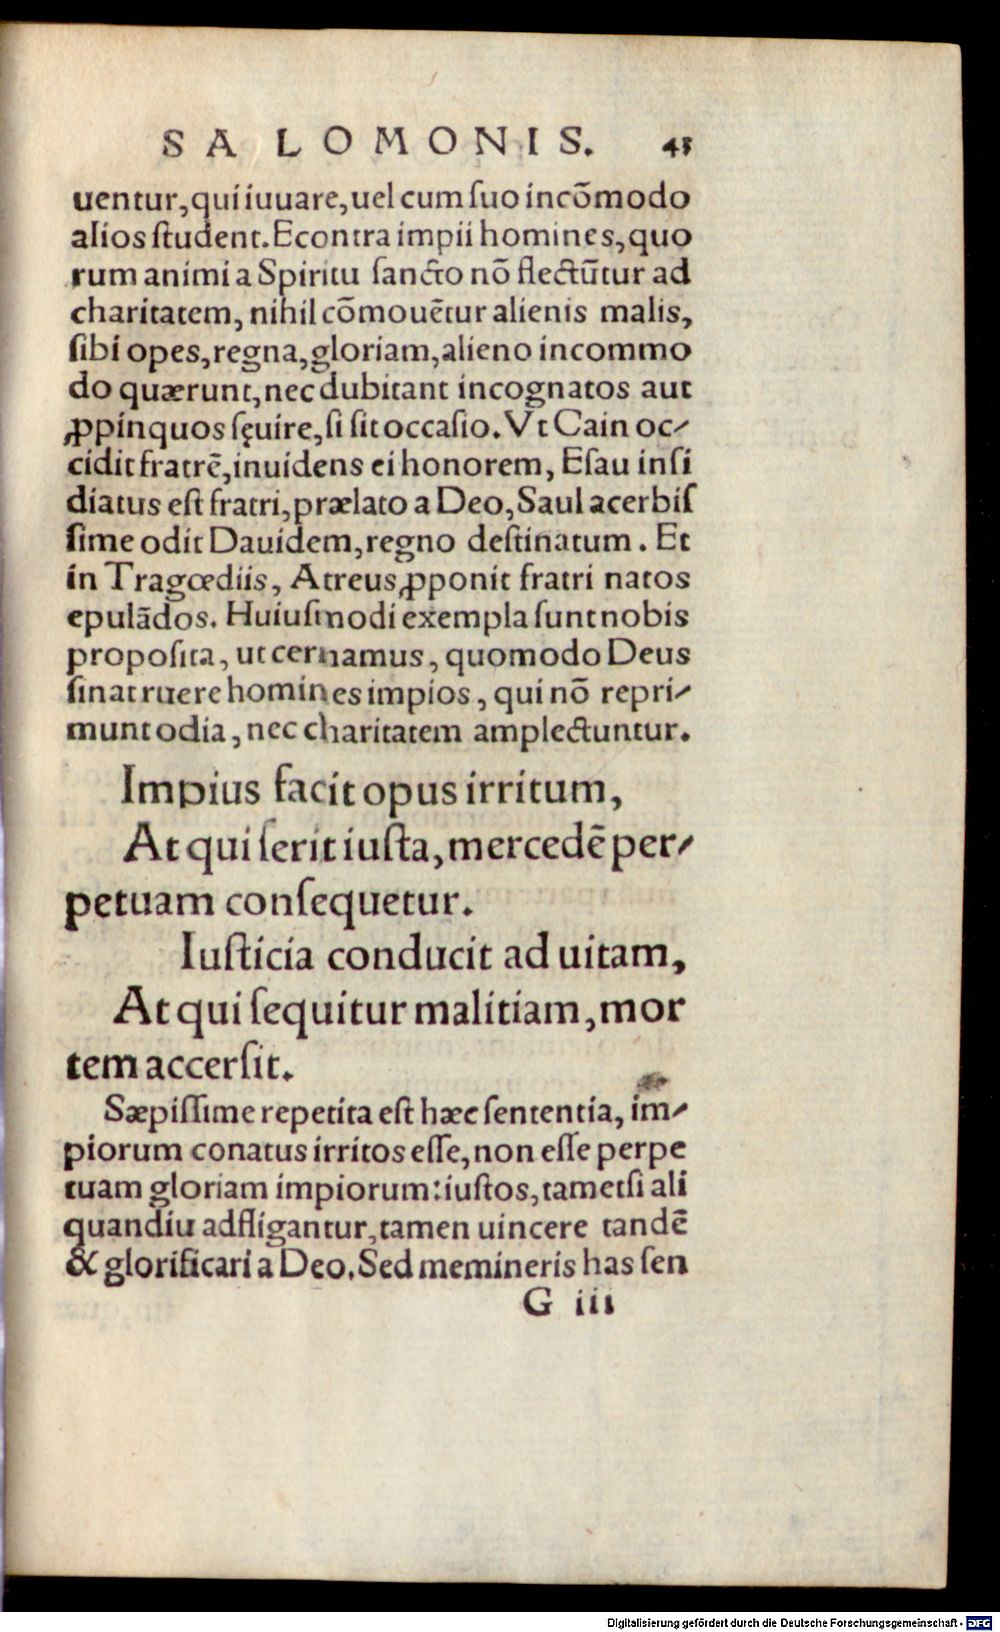 SALOMONIS. 45
uentur, qui iuuare, uel cum ſuo incõmodo
alios ſtudent. Econtra impii homines, quo
rum animi a Spiritu ſancto nõ flectũtur ad
charitatem, nihil cõmouẽtur alienis malis,
ſibi opes, regna, gloriam, alieno incommo
do quærunt, nec dubitant in cognatos aut
ꝓpinquos ſęuire, ſi ſit occaſio. Vt Cain oc⸗
cidit fratrẽ, inuidens ei honorem, Eſau inſi
diatus eſt fratri, prælato a Deo, Saul acerbiſ
ſime odit Dauidem, regno deſtinatum. Et
in Tragœdiis, Atreus ꝓponit fratri natos
epulãdos. Huiuſmodi exempla ſunt nobis
propoſita, ut cernamus, quomodo Deus
ſinat ruere homines impios, qui nõ repri⸗
munt odia, nec charitatem amplectuntur.
Impius facit opus irritum,
At qui ſerit iuſta, mercedẽ per⸗
petuam conſequetur.
Iuſticia conducit ad uitam,
At qui ſequitur malitiam, mor
tem accerſit.
Sæpiſſime repetita eſt hæc ſententia, im⸗
piorum conatus irritos eſſe, non eſſe perpe
tuam gloriam impiorum: iuſtos, tametſi ali
quandiu adfligantur, tamen uincere tandẽ
& glorificari a Deo. Sed memineris has ſen
G iii
Digitalisierung gefördert durch die Deutsche Forschungsgemeinschaft - DFG